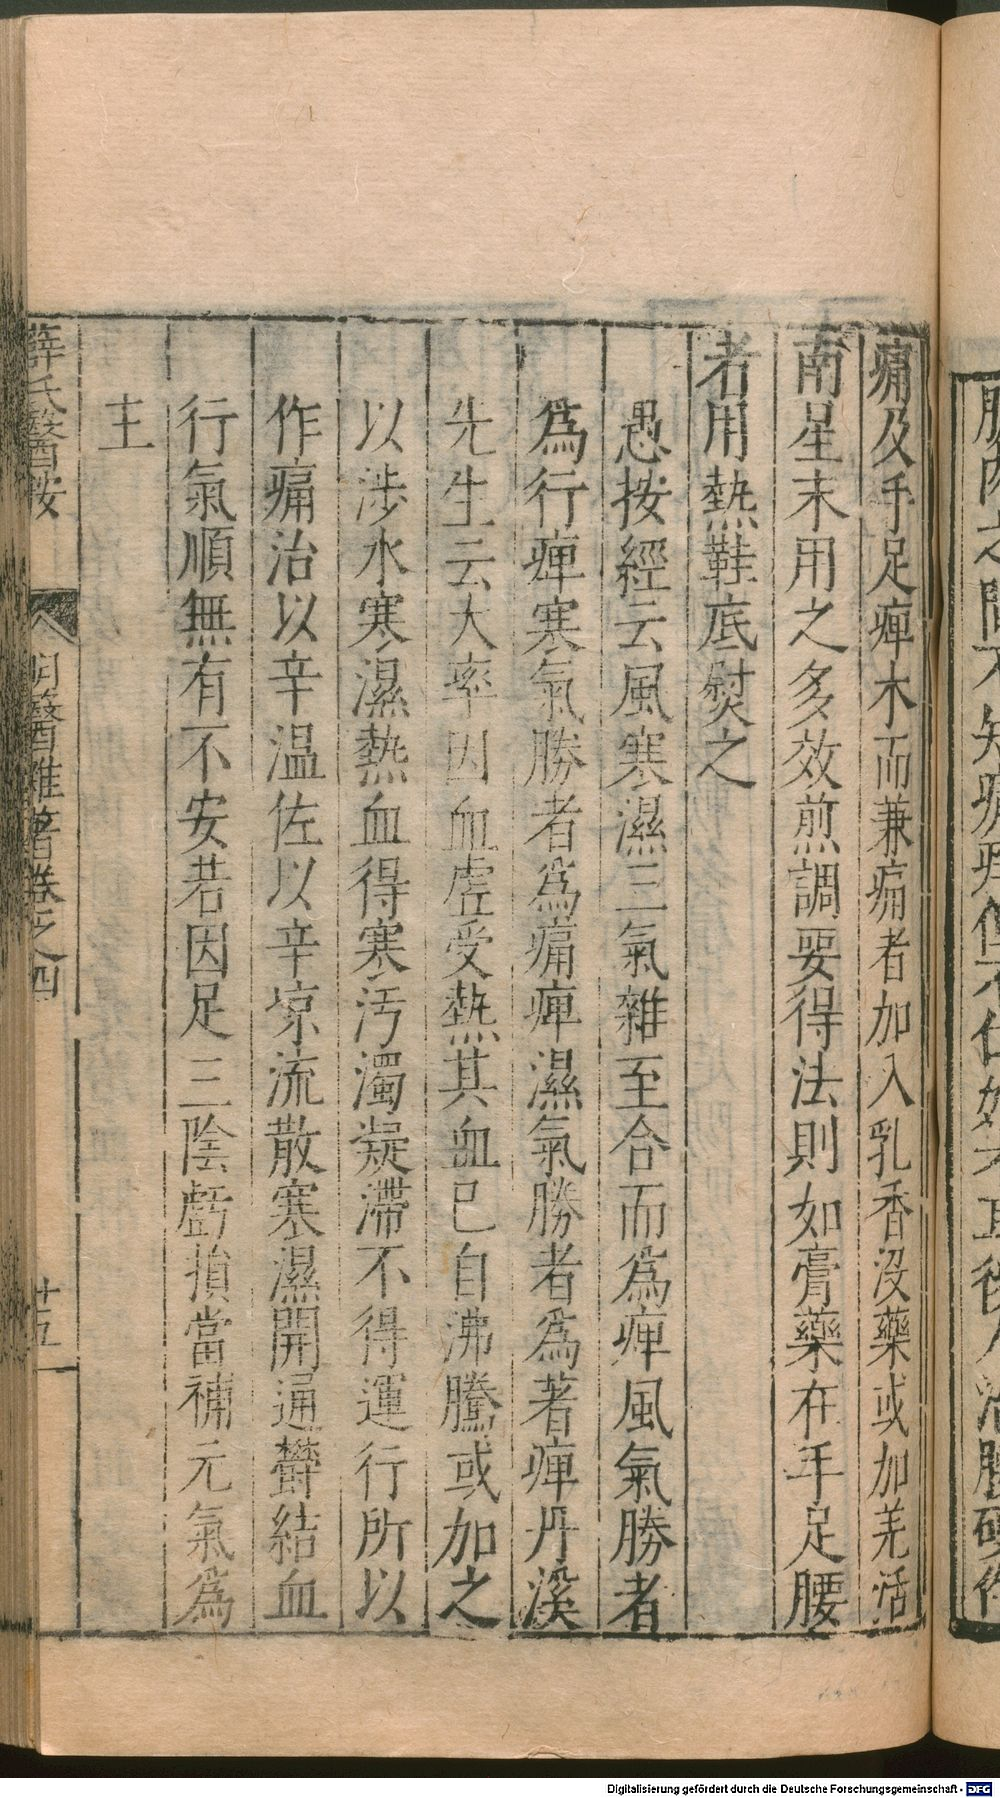 痛及手足痺木而兼痛者加入乳香沒藥或加羌活
南星末用之多效煎調要得法則如膏藥在手足腰
者用熱鞋底熨之
愚按經云風寒濕三氣雜至合而為痺風氣勝者
為行痺寒氣勝者為痛痺濕氣勝者為著痺丹溪
先生云大率因血虛受熱其血已自沸騰或加之
以涉水寒濕熱血得寒汚濁凝滯不得運行所以
作痛治以辛温佐以辛凉流散寒濕開通欝結血
行氣順無有不安若因足三陰虧損當補元氣為
主
薛氏醫按
明醫雜著卷之四
廿五
Digitalisierung gefördert durch die Deutsche Forschungsgemeinschaft - DFG